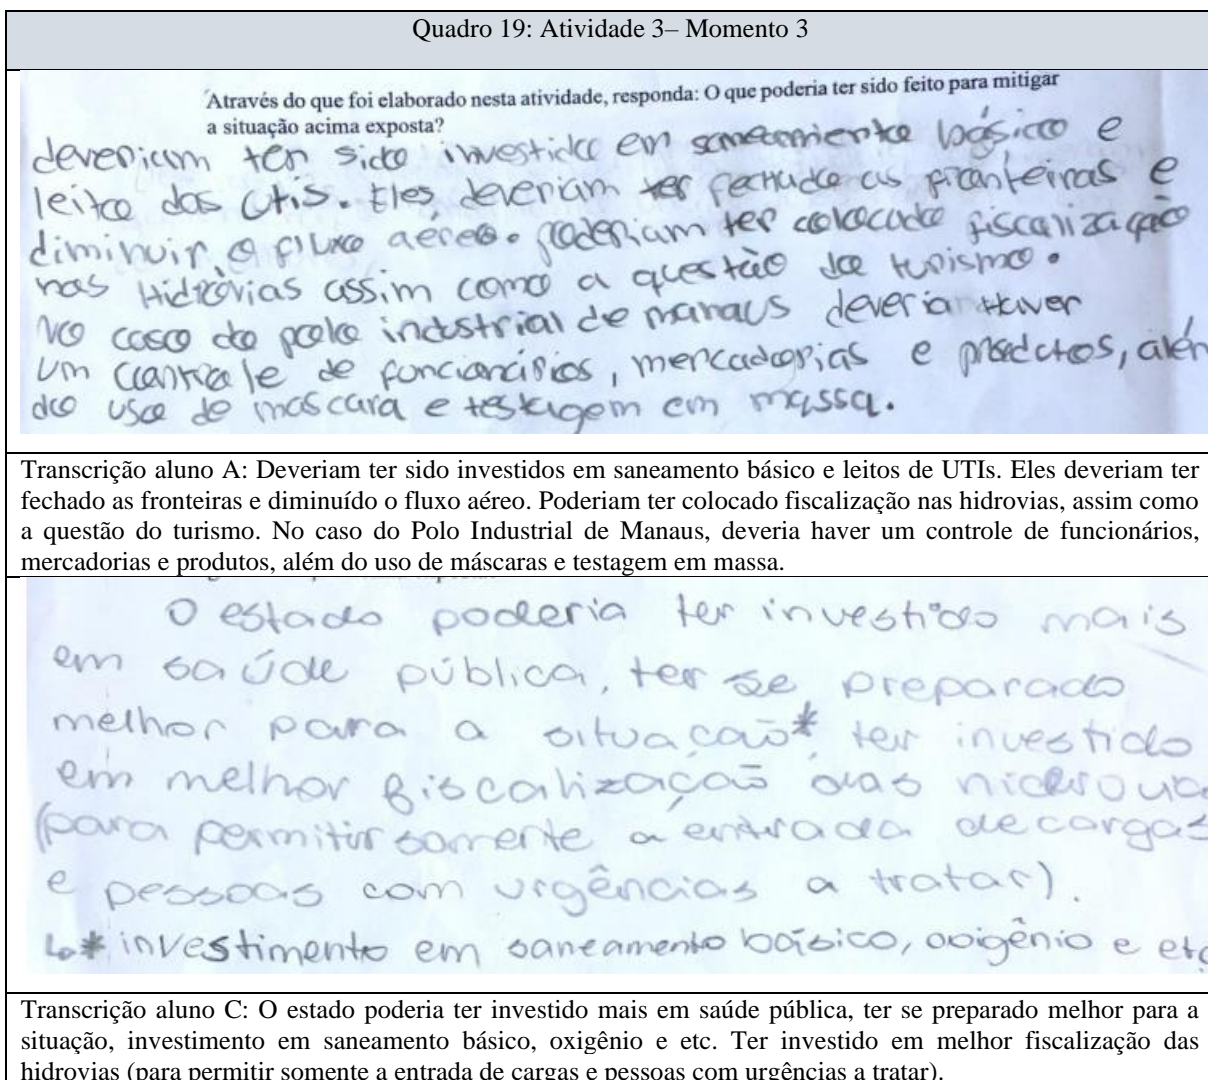 Quadro 19: Atividade 3– Momento 3
Através do que foi elaborado nesta atividade, responda: O que poderia ter sido feito para mitigar
a situação acima exposta?
deveriam ter sido investido em saneamiento básico e
leito das Utis. Eles deveriam ter fechado as fronteiras e
diminuir o fluxo aéreo. poderiam ter colocado fiscalização
nas Hidrovias assim como a questão do turismo.
No caso do polo industrial de manaus deveria Haver
um controle de funcionários, mercadorias e produtos, além
do uso de mascara e testagem em massa.
Transcrição aluno A: Deveriam ter sido investidos em saneamento básico e leitos de UTIs. Eles deveriam ter
fechado as fronteiras e diminuído o fluxo aéreo. Poderiam ter colocado fiscalização nas hidrovias, assim como
a questão do turismo. No caso do Polo Industrial de Manaus, deveria haver um controle de funcionários,
mercadorias e produtos, além do uso de máscaras e testagem em massa.
O estado poderia ter investido mais
em saúde pública, ter se preparado
melhor para a situação* ter investido
em melhor fiscalização das hidrovia
(para permitir somente a entrada de cargas
e pessoas com urgências a tratar).
↳* investimento em saneamento básico, oxigênio e etc
Transcrição aluno C: O estado poderia ter investido mais em saúde pública, ter se preparado melhor para a
situação, investimento em saneamento básico, oxigênio e etc. Ter investido em melhor fiscalização das
hidrovias (para permitir somente a entrada de cargas e pessoas com urgências a tratar).